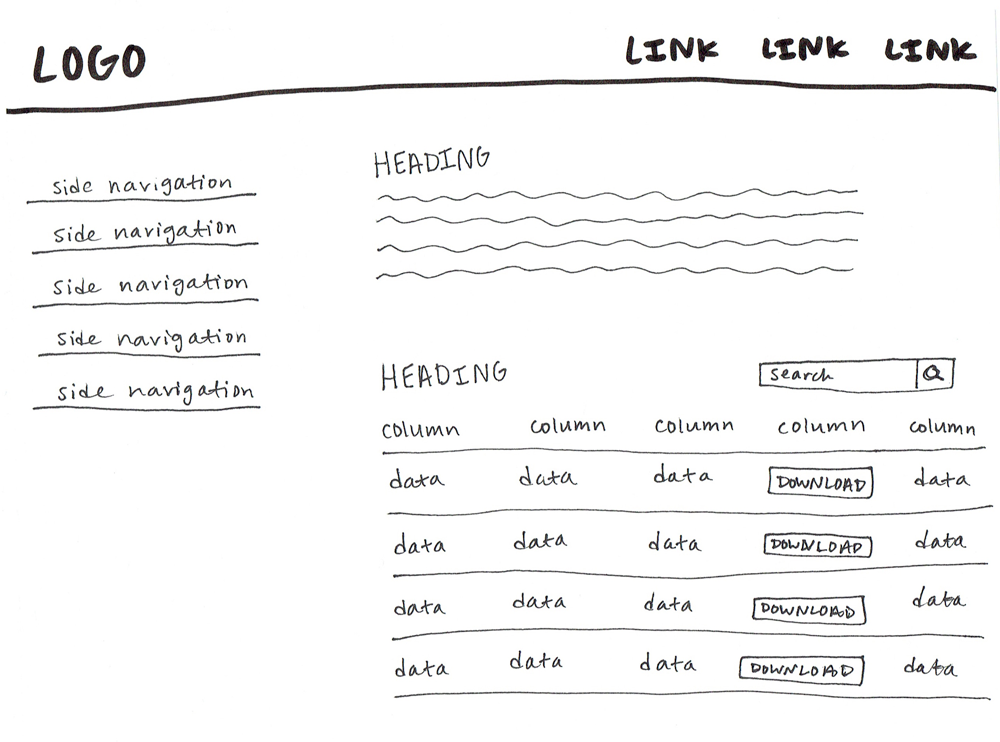 LOGO LINK LINK LINK
side navigation
side navigation
side navigation
side navigation
side navigation
HEADING
HEADING
search
column column column column column
data data data DOWNLOAD data
data data data DOWNLOAD data
data data data DOWNLOAD data
data data data DOWNLOAD data